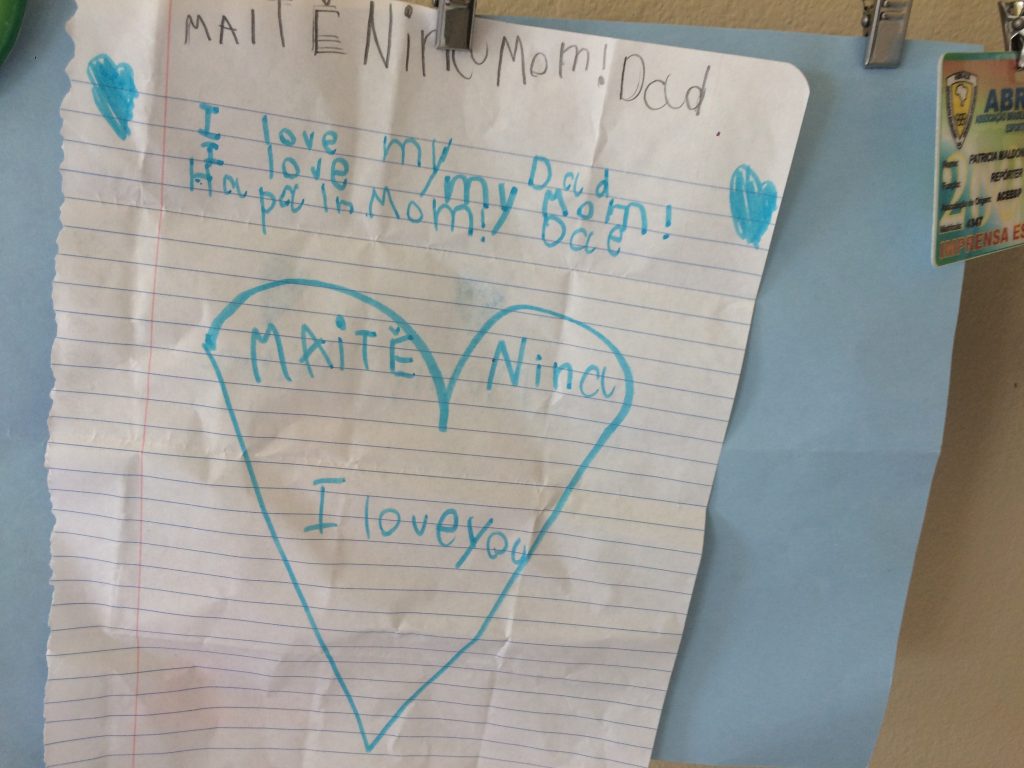 MAITĔ Nina Mom! Dad
I love my Dad
I love my Mom!
Ha pa in Mom! Dae
MAiTĔ Nina
I love you
ABR
PATRICIA
REPÓRTER
ACEESP